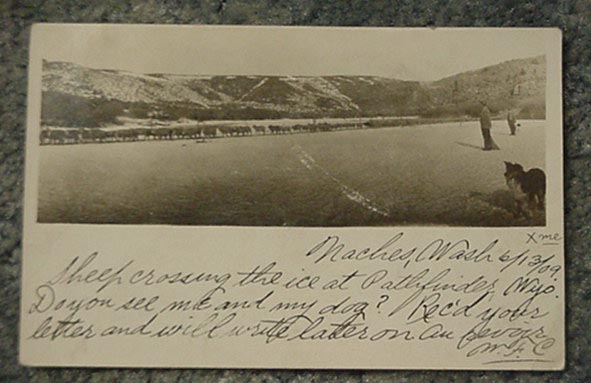 X me
Naches, Wash 6/13/09.
Sheep crossing the ice at Pathfinder, Wyo.
Do you see me and my dog? Rec'd your
letter and will write later on au revoir
W. F. C